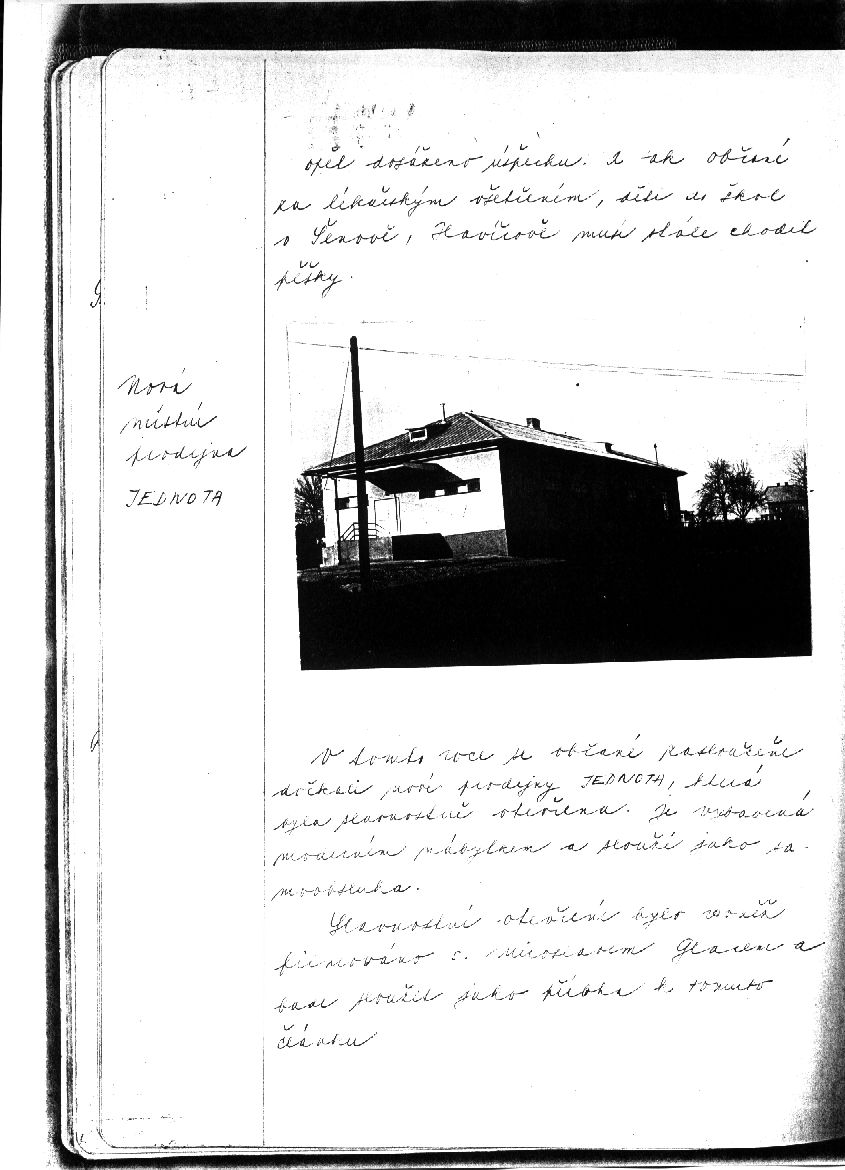 opět dosaženo úspěchu. A tak občané
za lékařským ošetřením, děti do škol
v Šenově, Havířově musí stále chodit
pěšky.
Nová
místní
prodejna
JEDNOTA
V tomto roce se občané zaslouženě
dočkali nové prodejny JEDNOTA, která
byla slavnostně otevřena. Je vybavená
moderním nábytkem a slouží jako sa-
moobsluha.
Slavnostní otevření bylo rovněž
filmováno s. Miroslavem a
bude sloužit jako příloha k tomuto
článku